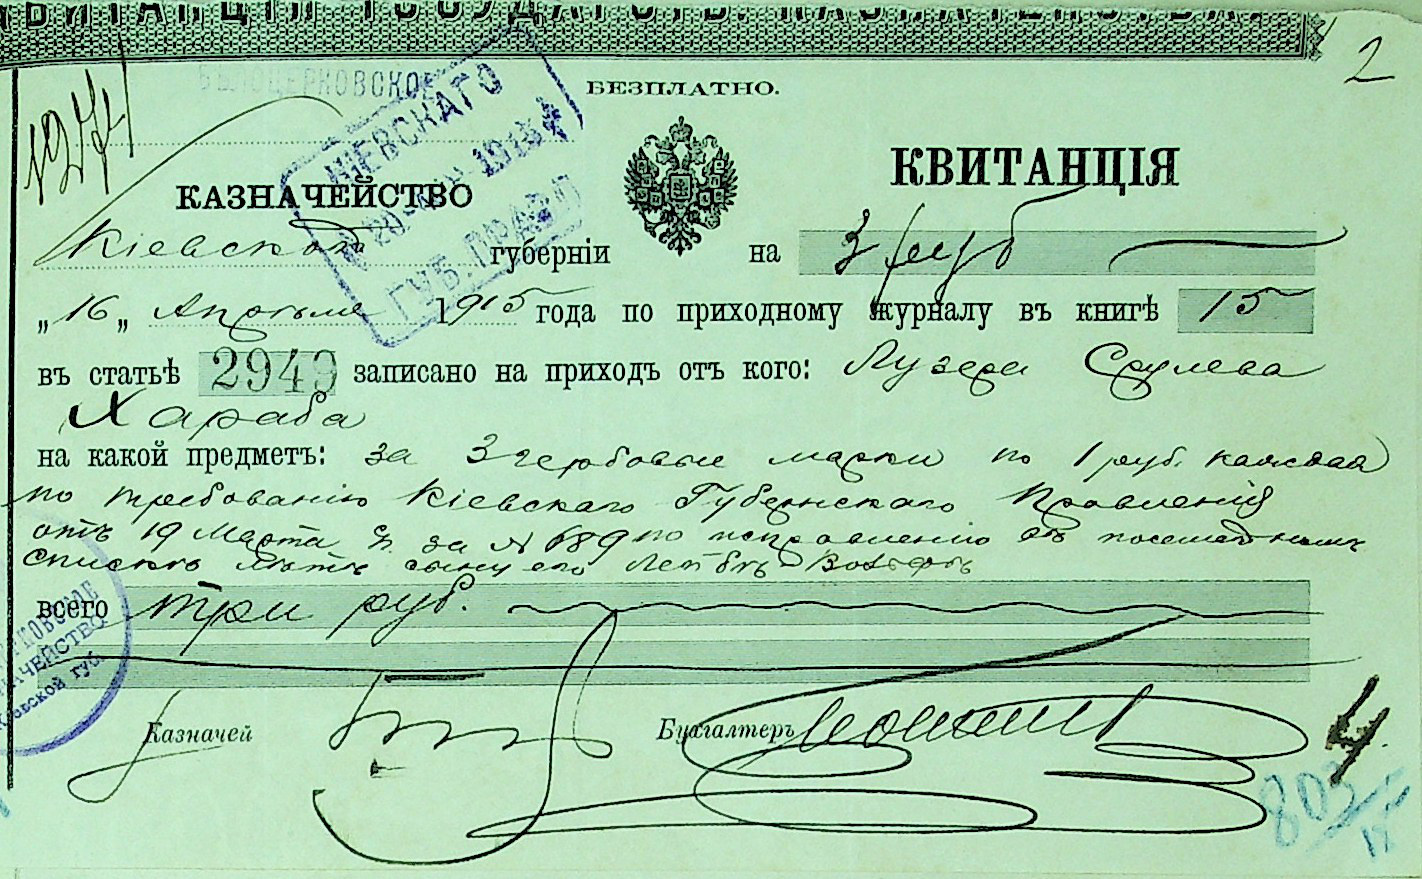 КВИТАНЦІЯ ГОСУДАРСТВ. КАЗНАЧЕЙСТВА.
2
БѢЛОЦЕРКОВСКОЕ
БЕЗПЛАТНО.
КІЕВСКАГО
ГУБ. ПРАВ
КАЗНАЧЕЙСТВО
КВИТАНЦІЯ
Кіевской губерніи на 3 руб
„16„ Апрѣля 1915 года по приходному журналу въ книгѣ 15
въ статьѣ 2949 записано на приходъ отъ кого: Лузера Срулева
Хараба
на какой предметъ: за 3 гербовые марки по 1 руб. каждая
по требованію Кіевскаго Губернскаго Правленія
отъ 19 Марта за № 689 по исправленію въ посемейномъ
спискѣ лѣтъ сыну его Лейбѣ
всего три руб.
КОВСКОЕ
НАЧЕЙСТВО
Кіевской губ.
Казначей
Бухгалтеръ
4.
803